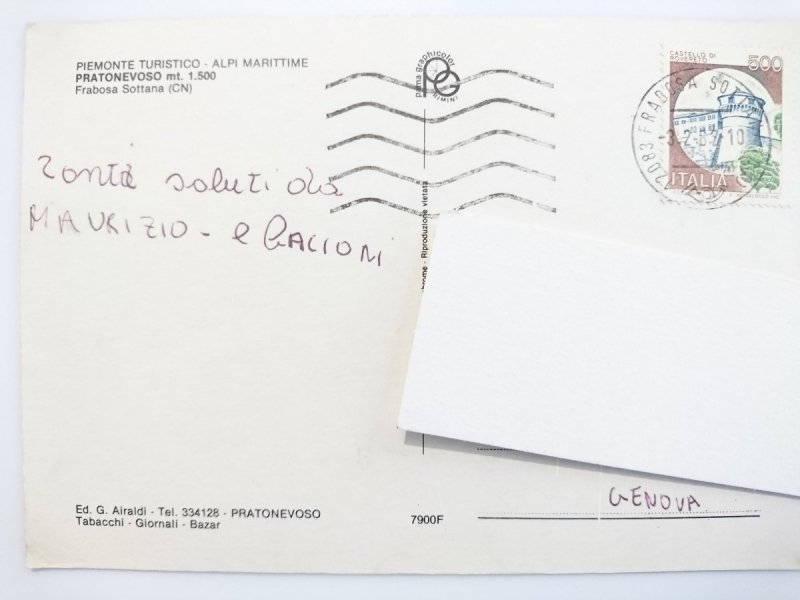 PIEMONTE TURISTICO - ALPI MARITTIME
PRATONEVOSO mt. 1.500
Frabosa Sottana (CN)
prima graphicolor
PG
RIMINI
Riproduzione vietata
CASTELLO DI
ROVERETO
500
ITALIA
Tanti saluti da
MAURIZIO - e
GENOVA
Ed. G. Airaldi - Tel. 334128 - PRATONEVOSO
Tabacchi - Giornali - Bazar
7900F